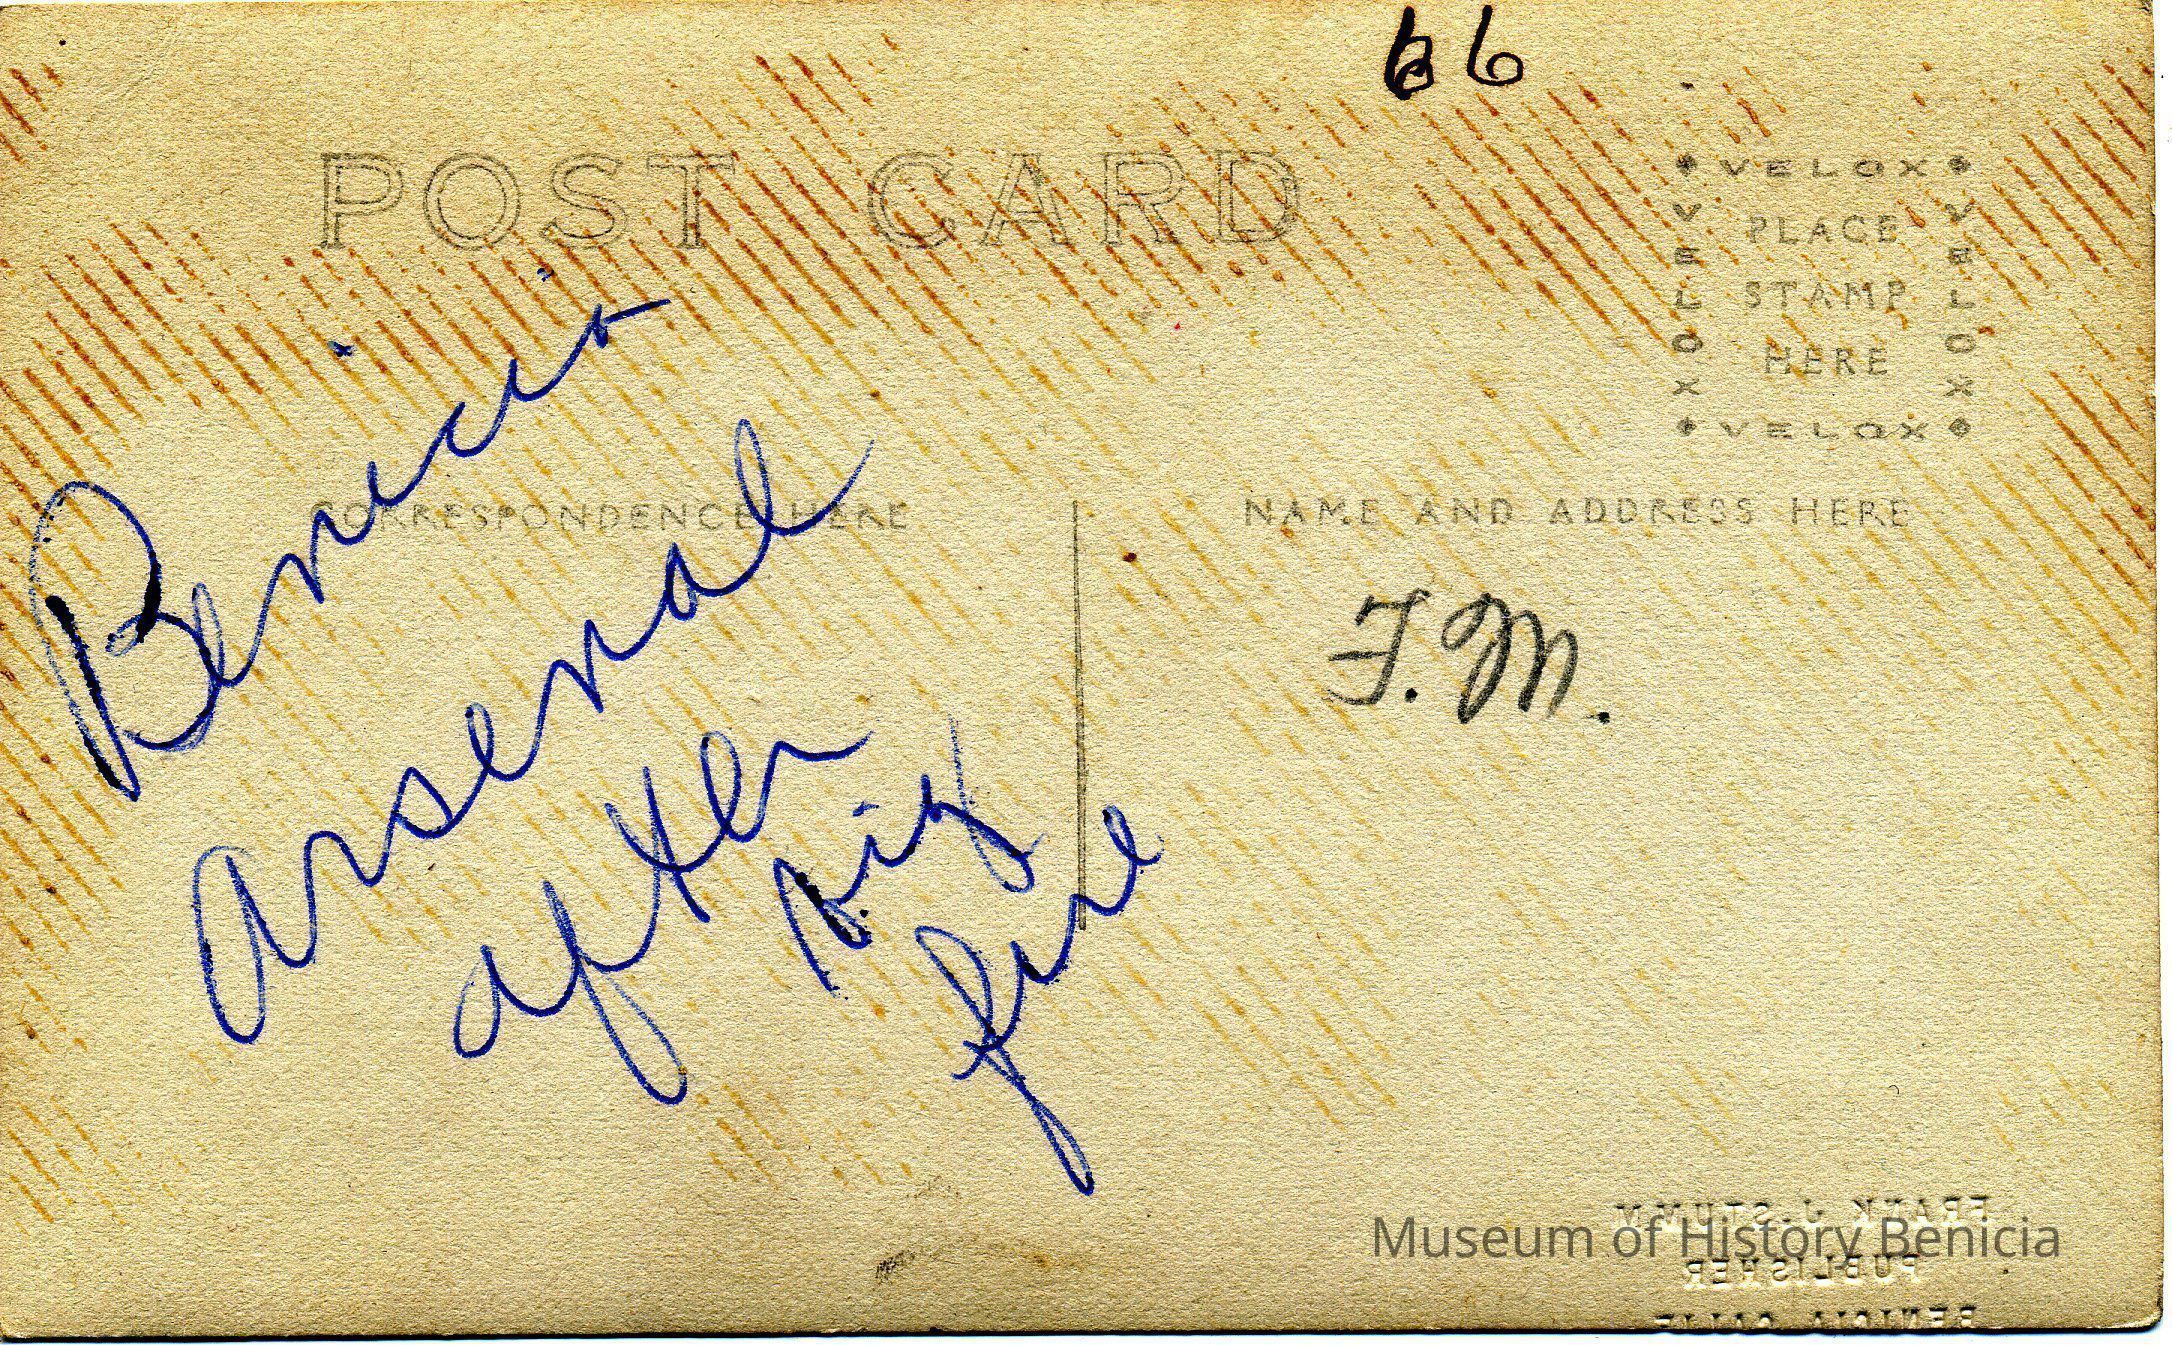 66
POST CARD
VELOX
VELOX
PLACE
STAMP
HERE
VELOX
VELOX
CORRESPONDENCE HERE
NAME AND ADDRESS HERE
Benicia
Arsenal
after
big
fire
F.M.
FRANK J. STUMM
PUBLISHER
BENICIA CALIF
Museum of History Benicia